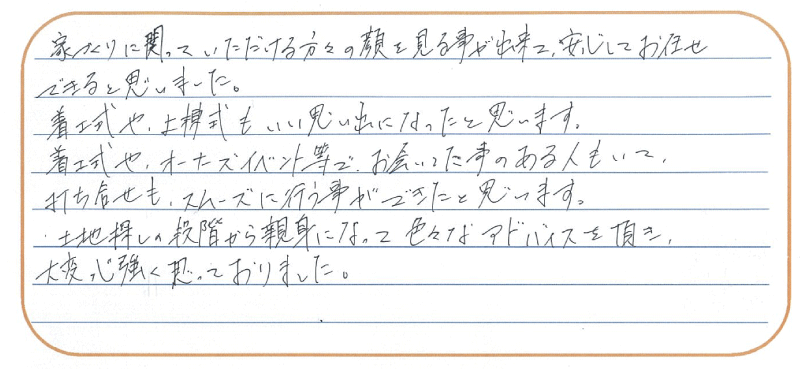 家づくりに関っていただける方々の顔を見る事が出来て、安心してお任せ
できると思いました。
着工式や、上棟式もいい思い出になったと思います。
着工式や、オーナーズイベント等で、お会いした事のある人もいて、
打ち合せも、スムーズに行う事ができたと思います。
・土地探しの段階から親身になって色々なアドバイスを頂き、
大変心強く思っておりました。